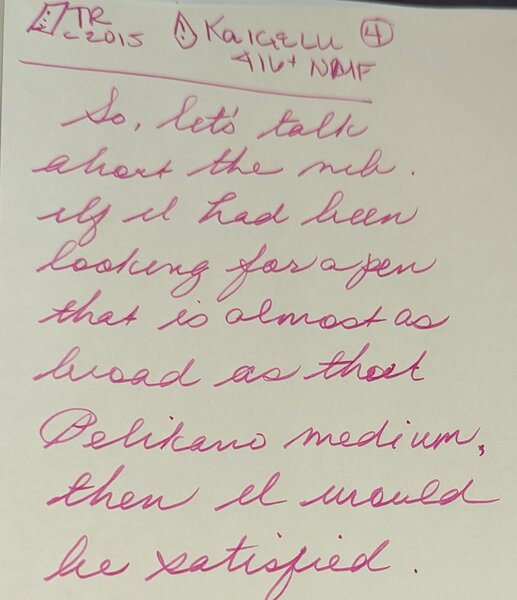 TR KAIGELU 4
~2015 416+ NMF
So, let's talk
about the nib.
If I had been
looking for a pen
that is almost as
broad as that
Pelikano medium,
then I would
be satisfied.